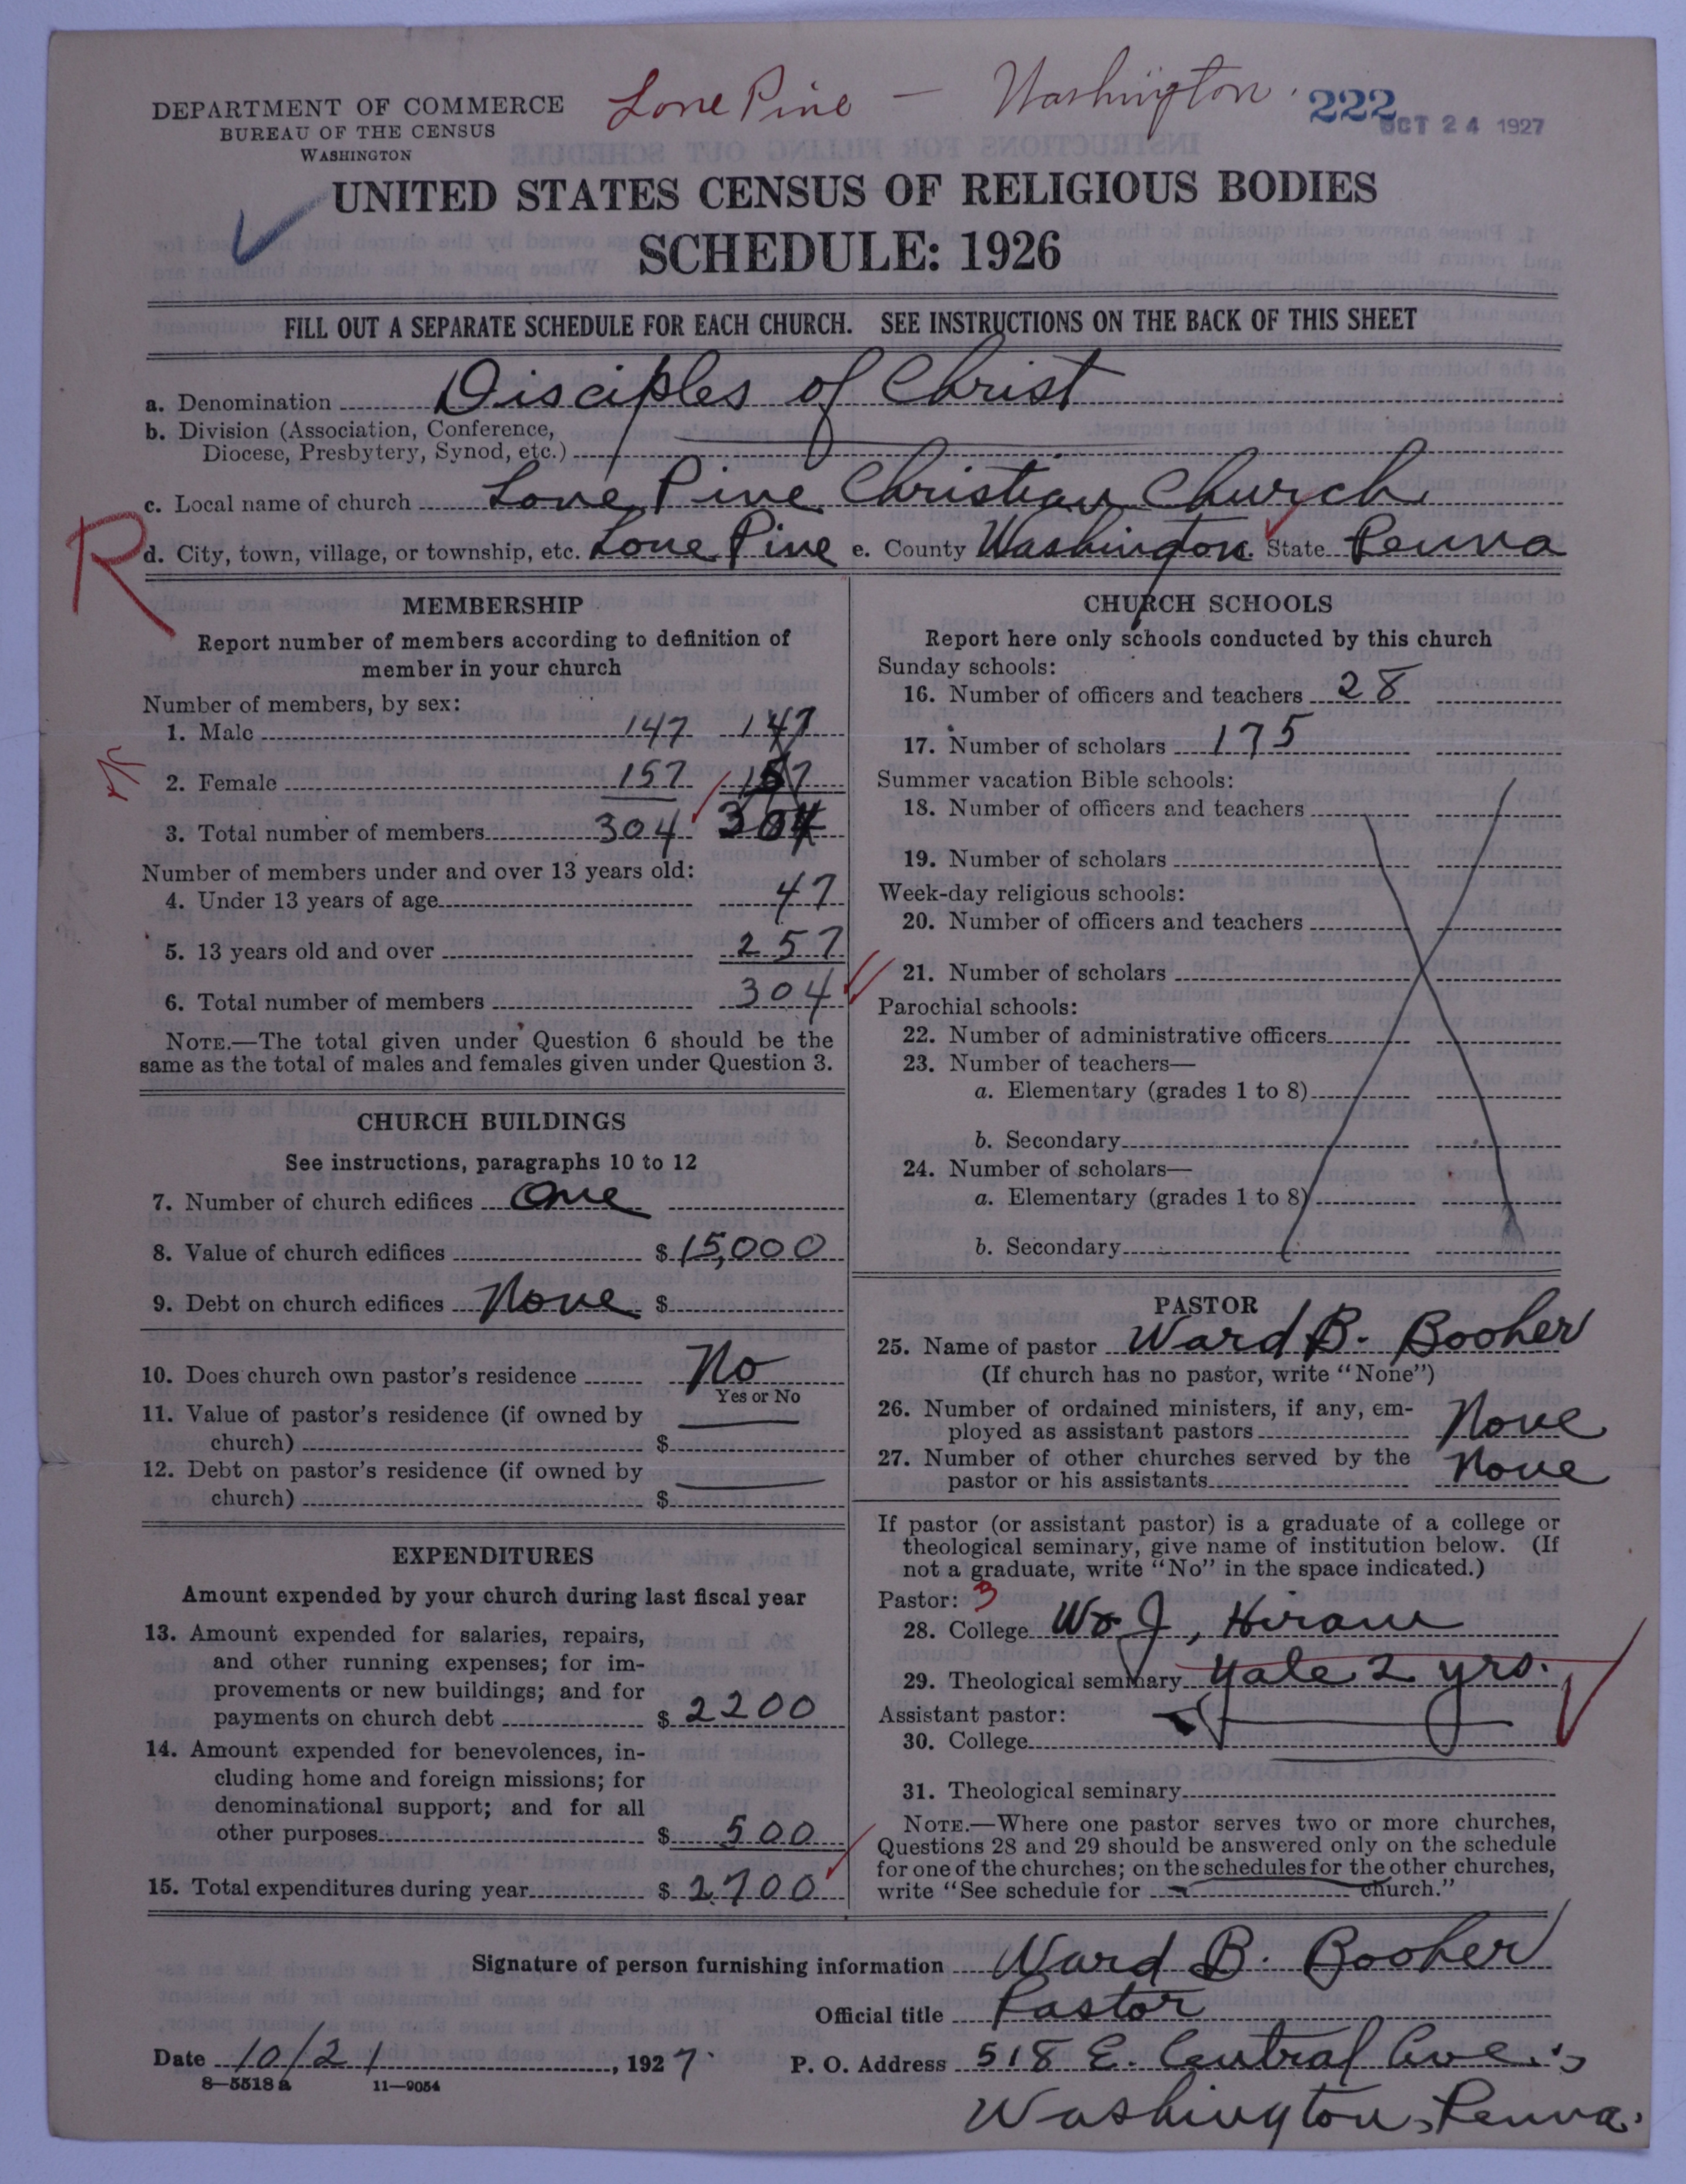 Lone Pine — Washington.
222
OCT 24 1927
DEPARTMENT OF COMMERCE
BUREAU OF THE CENSUS
WASHINGTON
UNITED STATES CENSUS OF RELIGIOUS BODIES
SCHEDULE: 1926
FILL OUT A SEPARATE SCHEDULE FOR EACH CHURCH. SEE INSTRUCTIONS ON THE BACK OF THIS SHEET
a. Denomination Disciples of Christ
b. Division (Association, Conference,
Diocese, Presbytery, Synod, etc.)
c. Local name of church Lone Pine Christian Church
R
d. City, town, village, or township, etc. Lone Pine e. County Washington. State Penna
MEMBERSHIP
Report number of members according to definition of
member in your church
Number of members, by sex:
1. Male 147 147
2. Female 157 157
3. Total number of members 304 304
Number of members under and over 13 years old:
4. Under 13 years of age 47
5. 13 years old and over 257
6. Total number of members 304
NOTE.—The total given under Question 6 should be the
same as the total of males and females given under Question 3.
CHURCH BUILDINGS
See instructions, paragraphs 10 to 12
7. Number of church edifices One
8. Value of church edifices $ 15,000
9. Debt on church edifices None $
10. Does church own pastor's residence No
Yes or No
11. Value of pastor's residence (if owned by
church) $
12. Debt on pastor's residence (if owned by
church) $
EXPENDITURES
Amount expended by your church during last fiscal year
13. Amount expended for salaries, repairs,
and other running expenses; for im-
provements or new buildings; and for
payments on church debt $ 2200
14. Amount expended for benevolences, in-
cluding home and foreign missions; for
denominational support; and for all
other purposes $ 500
15. Total expenditures during year $ 2700
CHURCH SCHOOLS
Report here only schools conducted by this church
Sunday schools:
16. Number of officers and teachers 28
17. Number of scholars 175
Summer vacation Bible schools:
18. Number of officers and teachers
19. Number of scholars
Week-day religious schools:
20. Number of officers and teachers
21. Number of scholars
Parochial schools:
22. Number of administrative officers
23. Number of teachers—
a. Elementary (grades 1 to 8)
b. Secondary
24. Number of scholars—
a. Elementary (grades 1 to 8)
b. Secondary
PASTOR
25. Name of pastor Ward B. Booher
(If church has no pastor, write "None")
26. Number of ordained ministers, if any, em-
ployed as assistant pastors None
27. Number of other churches served by the
pastor or his assistants None
If pastor (or assistant pastor) is a graduate of a college or
theological seminary, give name of institution below. (If
not a graduate, write "No" in the space indicated.)
Pastor: 3
28. College W & J, Hiram
29. Theological seminary Yale 2 yrs.
Assistant pastor:
30. College
31. Theological seminary
NOTE.—Where one pastor serves two or more churches,
Questions 28 and 29 should be answered only on the schedule
for one of the churches; on the schedules for the other churches,
write "See schedule for church."
Signature of person furnishing information Ward B. Booher
Official title Pastor
Date 10/21, 1927. P. O. Address 518 E. Central Ave.,
8—5518 a 11—9054
Washington, Penna.